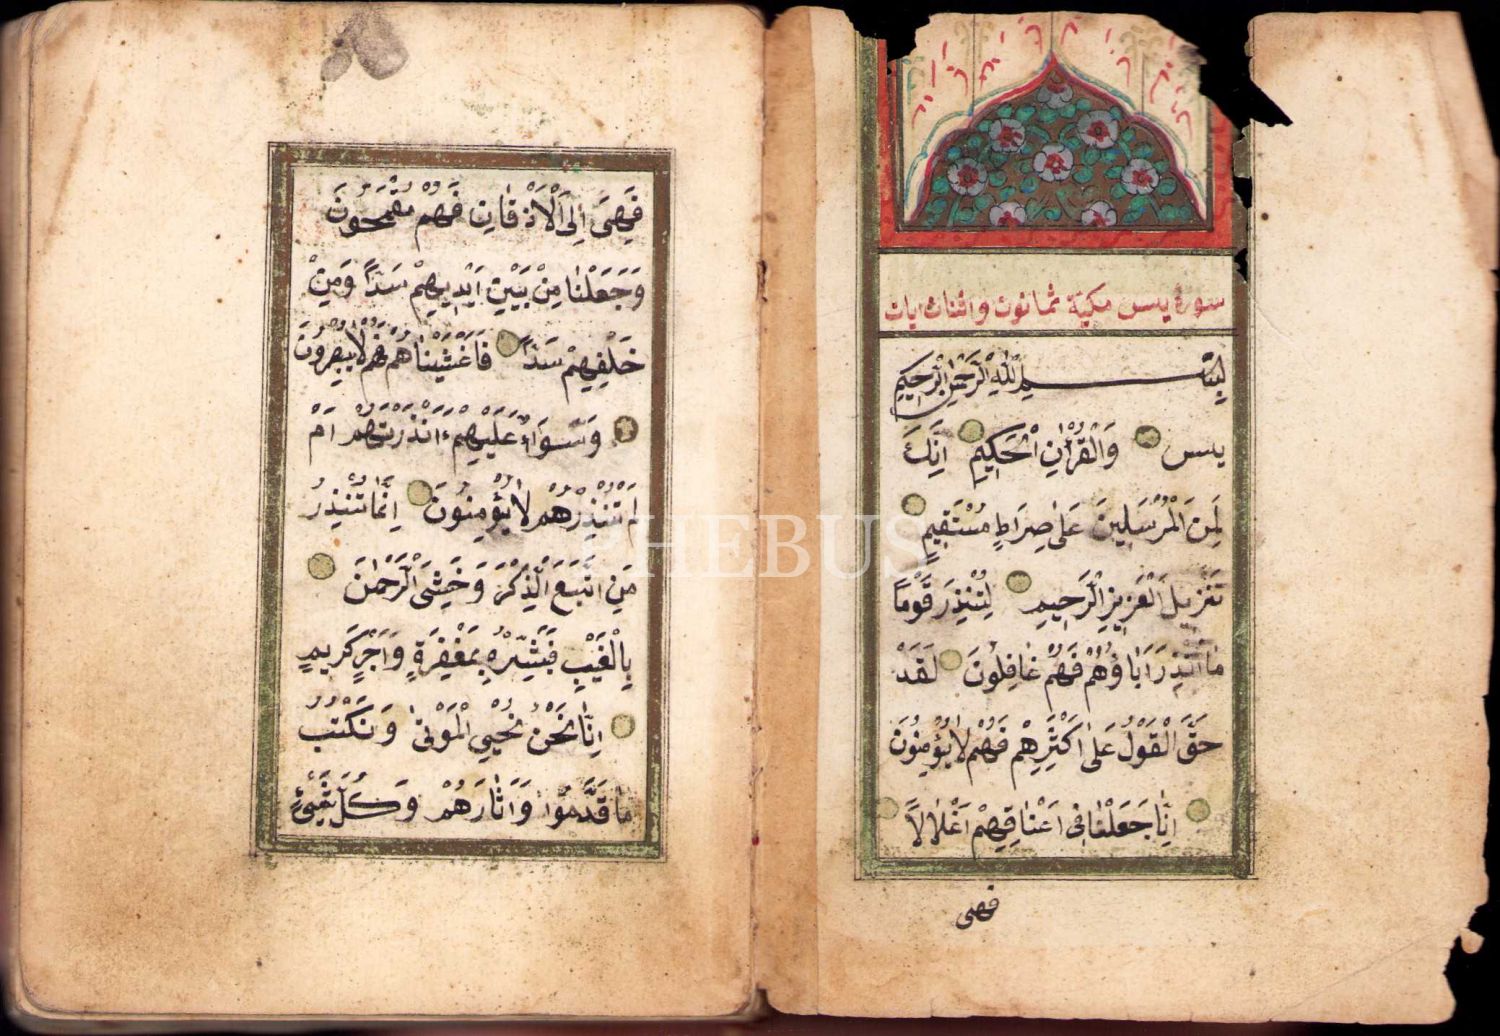 سورة يس مكية ثمانون واثنات ايات
بِسْمِ اللّٰهِ الرَّحْمٰنِ الرَّحِيمِ
يس وَالْقُرْاٰنِ الْحَكِيمِ اِنَّكَ
لَمِنَ الْمُرْسَلِينَ عَلٰى صِرَاطٍ مُسْتَقِيمٍ
تَنْزِيلَ الْعَزِيزِ الرَّحِيمِ لِتُنْذِرَ قَوْمًا
مَا اُنْذِرَ اٰبَاؤُهُمْ فَهُمْ غَافِلُونَ لَقَدْ
حَقَّ الْقَوْلُ عَلٰى اَكْثَرِهِمْ فَهُمْ لَا يُؤْمِنُونَ
اِنَّا جَعَلْنَا فِى اَعْنَاقِهِمْ اَغْلَالًا
فهى
فَهِىَ اِلَى الْاَذْقَانِ فَهُمْ مُقْمَحُونَ
وَجَعَلْنَا مِنْ بَيْنِ اَيْدِيهِمْ سَدًّا وَمِنْ
خَلْفِهِمْ سَدًّا فَاَغْشَيْنَاهُمْ فَهُمْ لَا يُبْصِرُونَ
وَسَوَاءٌ عَلَيْهِمْ ءَاَنْذَرْتَهُمْ اَمْ
لَمْ تُنْذِرْهُمْ لَا يُؤْمِنُونَ اِنَّمَا تُنْذِرُ
مَنِ اتَّبَعَ الذِّكْرَ وَخَشِىَ الرَّحْمٰنَ
بِالْغَيْبِ فَبَشِّرْهُ بِمَغْفِرَةٍ وَاَجْرٍ كَرِيمٍ
اِنَّا نَحْنُ نُحْيِى الْمَوْتٰى وَنَكْتُبُ
مَا قَدَّمُوا وَاٰثَارَهُمْ وَكُلَّ شَيْءٍ
PHEBUS